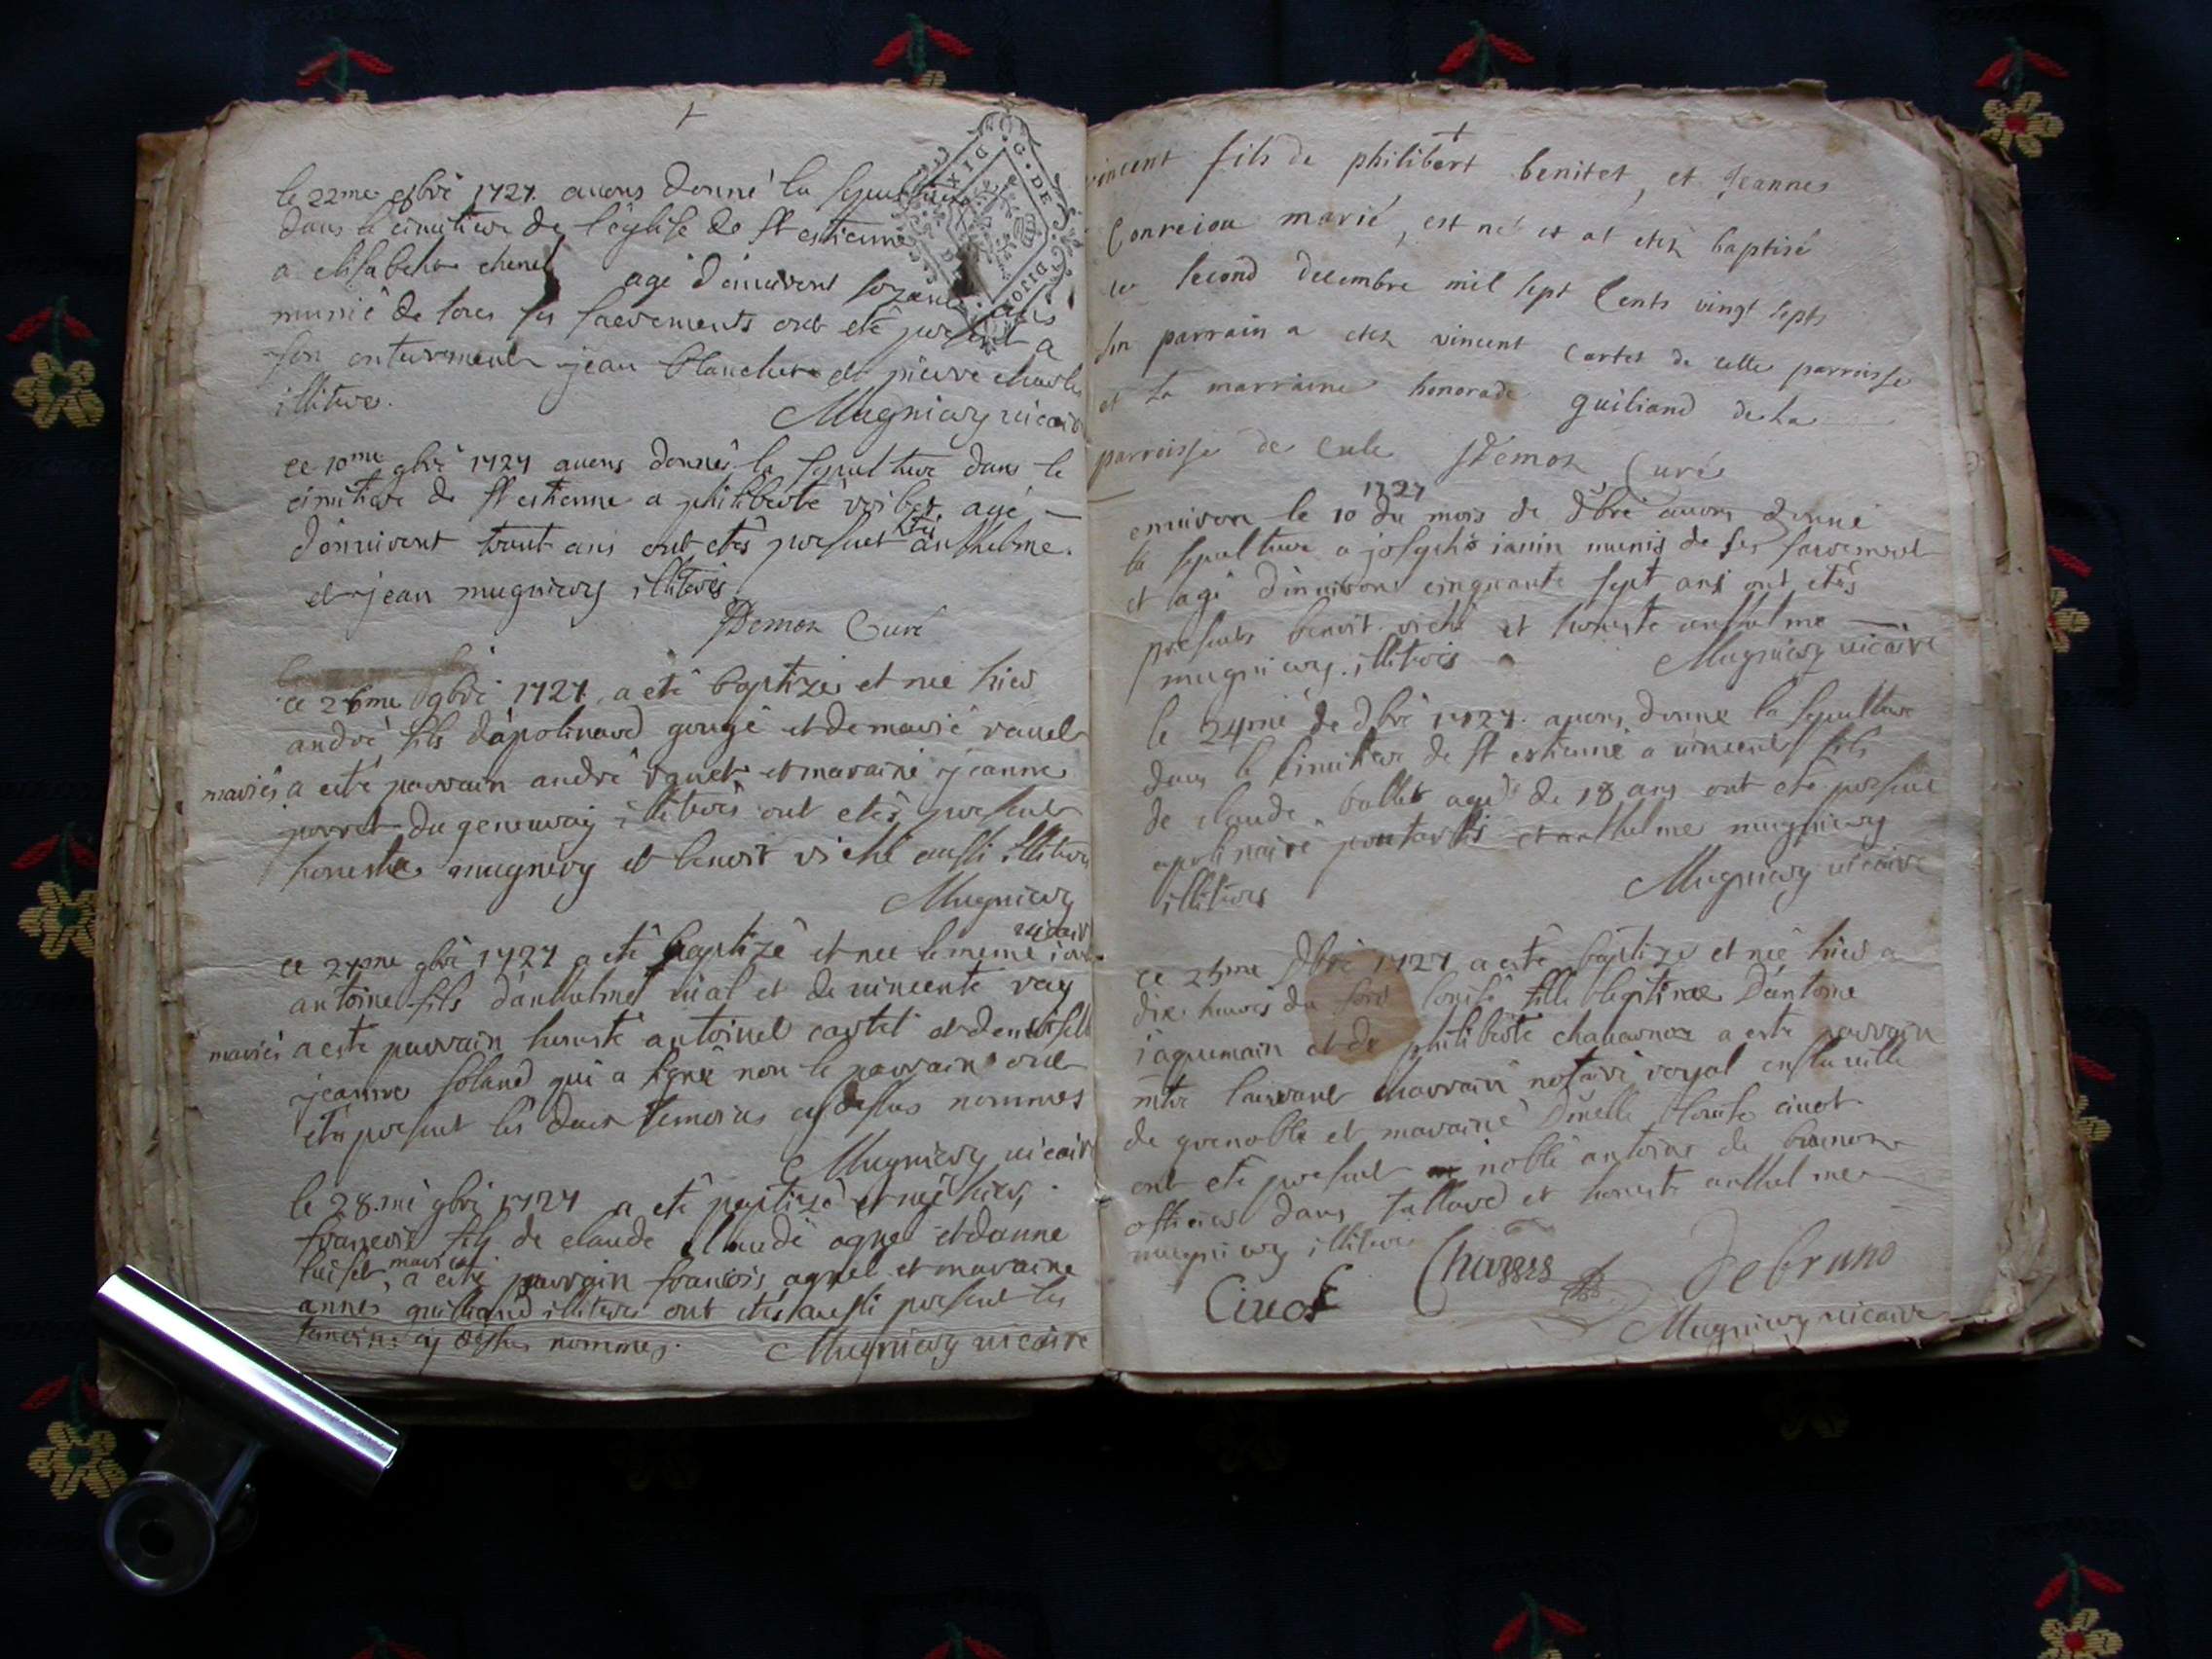 le 22me gbre 1727. avons donné la sepulture
dans le cimitiere de l'eglise de st estienne
a elisabethe chenel agé d'environt soizante ans
munie de tous ses sacrements ont eté present a
son enterrement jean blanchet et pierre charles
illiteres.
Mugniery vicaire
ce 10me gbre 1727 avons donnés la sepulture dans le
cimitiere de st estienne a philiberte agé
d'environt trent ans ont etés present anthelme.
et jean mugniery illiterés
Demon Curé
ce 26me gbre 1727. a eté baptizé et nee hier
andré fils d'apolinard gougé et de marie ravel
mariés a esté parrain andré et maraine jeanne
perret du geneuray illiterés ont etés present
honeste mugniery et benoit viché aussi illiteres
Mugniery
vicaire
ce 27me gbre 1727 a eté baptizé et nee le meme iour
antoine fils d'anthelme vial et de vincente rey
mariés a esté parrain honeste antoine cartet et demoiselle
jeanne soland qui a signé non le parrain ont
etés present les deux temoins cy dessus nommes
Mugniery vicaire
le 28.me gbre 1727 a eté baptizé et né hier,
francois fils de claude claude agnel et d'anne
luiset mariés, a esté parrain francois agnel et maraine
anne guilland illiteres ont etés aussi present les
temoins cy dessus nommes.
Mugniery vicaire
G. DE DIJON
vincent fils de philibert benitet, et Jeanne
Conreiou marié, est né et at etez baptisé
le second decembre mil sept Cents vingt sept
son parrain a etez vincent Cartet de cette parroisse
et sa marraine honorade guiliand de la
parroisse de Cule Demon Curé
1727
environ le 10 du mois de dbre avons donné
la sepulture a josephe ianin munis de ses sacrement
et agé d'environt cinquante sept ans ont etés
presents benoit viché et honeste anthelme
mugniery. illiterés
Mugniery vicaire
le 24me de dbre 1727. avons donne la sepulture
dans le cimitiere de st estienne a vincent fils
de claude ballet agé de 18 ans ont eté present
apolinaire pontarlis et anthelme mugniery
illiteres
Mugniery vicaire
ce 25me dbre 1727 a esté baptize et née hier a
dix heures du soir louise fille legitime D'antoine
iaquemain et de philiberte chavarnoz a esté parrain
mtre laurent charrain notaire royal en la ville
de grenoble et maraine Dmelle louise ciuot
ont eté present noble antoine de brunoz
officier dans tallard et honeste anthelme
mugniery illitere
Ciuot Debruno
Mugniery vicaire